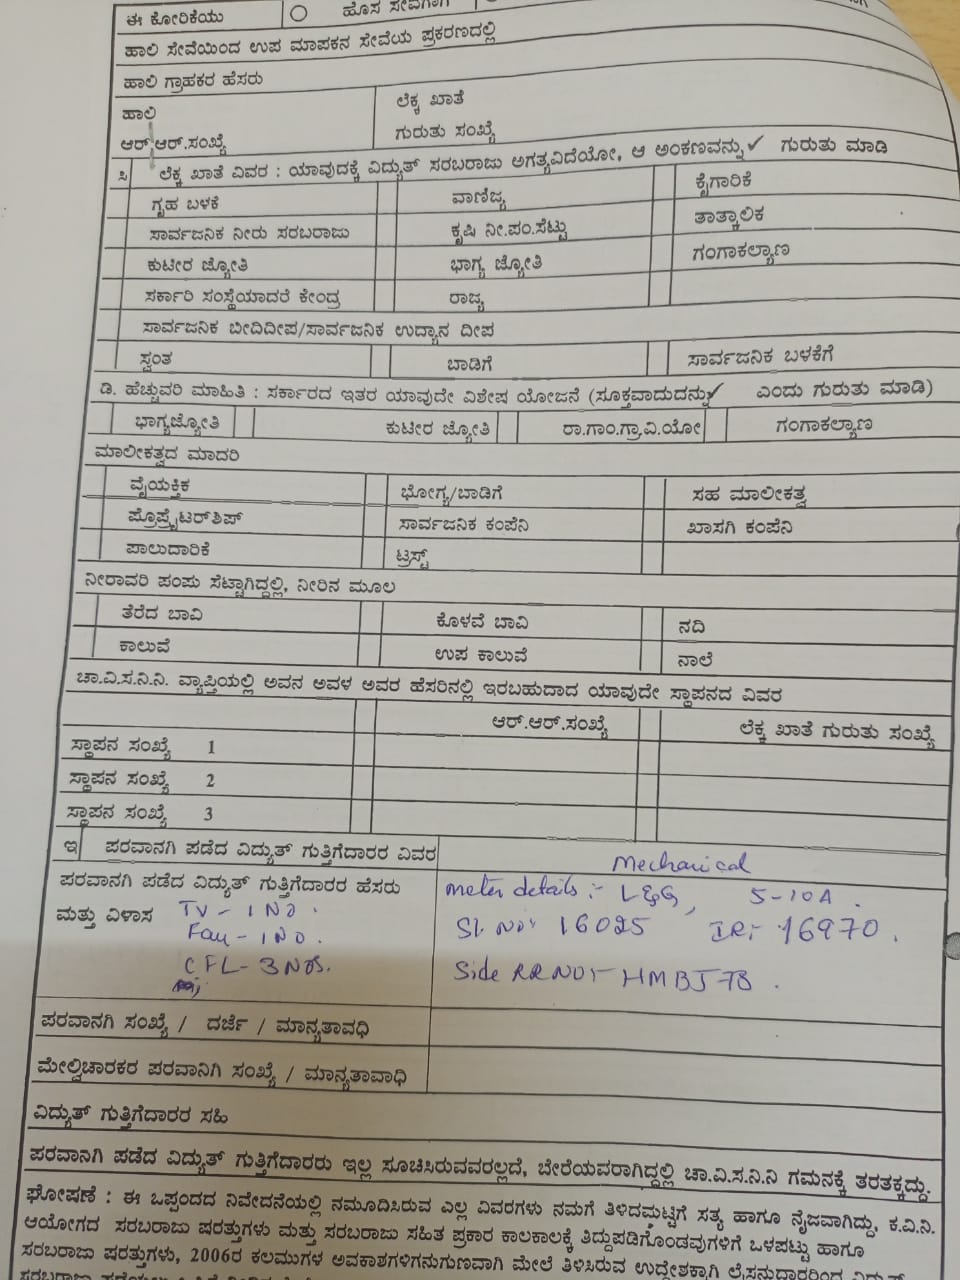 ಈ ಕೋರಿಕೆಯು ಹೊಸ ಸೇವೆಗಾಗಿ
ಹಾಲಿ ಸೇವೆಯಿಂದ ಉಪ ಮಾಪಕನ ಸೇವೆಯ ಪ್ರಕರಣದಲ್ಲಿ
ಹಾಲಿ ಗ್ರಾಹಕರ ಹೆಸರು
ಹಾಲಿ ಲೆಕ್ಕ ಖಾತೆ
ಆರ್.ಆರ್.ಸಂಖ್ಯೆ ಗುರುತು ಸಂಖ್ಯೆ
ಸಿ ಲೆಕ್ಕ ಖಾತೆ ವಿವರ : ಯಾವುದಕ್ಕೆ ವಿದ್ಯುತ್ ಸರಬರಾಜು ಅಗತ್ಯವಿದೆಯೋ, ಆ ಅಂಕಣವನ್ನು ✓ ಗುರುತು ಮಾಡಿ
ಗೃಹ ಬಳಕೆ ವಾಣಿಜ್ಯ ಕೈಗಾರಿಕೆ
ಸಾರ್ವಜನಿಕ ನೀರು ಸರಬರಾಜು ಕೃಷಿ ನೀ.ಪಂ.ಸೆಟ್ಟು ತಾತ್ಕಾಲಿಕ
ಕುಟೀರ ಜ್ಯೋತಿ ಭಾಗ್ಯ ಜ್ಯೋತಿ ಗಂಗಾಕಲ್ಯಾಣ
ಸರ್ಕಾರಿ ಸಂಸ್ಥೆಯಾದರೆ ಕೇಂದ್ರ ರಾಜ್ಯ
ಸಾರ್ವಜನಿಕ ಬೀದಿದೀಪ/ಸಾರ್ವಜನಿಕ ಉದ್ಯಾನ ದೀಪ
ಸ್ವಂತ ಬಾಡಿಗೆ ಸಾರ್ವಜನಿಕ ಬಳಕೆಗೆ
ಡಿ. ಹೆಚ್ಚುವರಿ ಮಾಹಿತಿ : ಸರ್ಕಾರದ ಇತರ ಯಾವುದೇ ವಿಶೇಷ ಯೋಜನೆ (ಸೂಕ್ತವಾದುದನ್ನು ✓ ಎಂದು ಗುರುತು ಮಾಡಿ)
ಭಾಗ್ಯಜ್ಯೋತಿ ಕುಟೀರ ಜ್ಯೋತಿ ರಾ.ಗಾಂ.ಗ್ರಾ.ವಿ.ಯೋ ಗಂಗಾಕಲ್ಯಾಣ
ಮಾಲೀಕತ್ವದ ಮಾದರಿ
ವೈಯಕ್ತಿಕ ಭೋಗ್ಯ/ಬಾಡಿಗೆ ಸಹ ಮಾಲೀಕತ್ವ
ಪ್ರೊಪ್ರೈಟರ್‌ಶಿಪ್ ಸಾರ್ವಜನಿಕ ಕಂಪೆನಿ ಖಾಸಗಿ ಕಂಪೆನಿ
ಪಾಲುದಾರಿಕೆ ಟ್ರಸ್ಟ್
ನೀರಾವರಿ ಪಂಪು ಸೆಟ್ಟಾಗಿದ್ದಲ್ಲಿ, ನೀರಿನ ಮೂಲ
ತೆರೆದ ಬಾವಿ ಕೊಳವೆ ಬಾವಿ ನದಿ
ಕಾಲುವೆ ಉಪ ಕಾಲುವೆ ನಾಲೆ
ಚಾ.ವಿ.ಸ.ನಿ.ನಿ. ವ್ಯಾಪ್ತಿಯಲ್ಲಿ ಅವನ ಅವಳ ಅವರ ಹೆಸರಿನಲ್ಲಿ ಇರಬಹುದಾದ ಯಾವುದೇ ಸ್ಥಾಪನದ ವಿವರ
ಆರ್.ಆರ್.ಸಂಖ್ಯೆ ಲೆಕ್ಕ ಖಾತೆ ಗುರುತು ಸಂಖ್ಯೆ
ಸ್ಥಾಪನ ಸಂಖ್ಯೆ 1
ಸ್ಥಾಪನ ಸಂಖ್ಯೆ 2
ಸ್ಥಾಪನ ಸಂಖ್ಯೆ 3
ಇ ಪರವಾನಗಿ ಪಡೆದ ವಿದ್ಯುತ್ ಗುತ್ತಿಗೆದಾರರ ವಿವರ
Mechanical
ಪರವಾನಗಿ ಪಡೆದ ವಿದ್ಯುತ್ ಗುತ್ತಿಗೆದಾರರ ಹೆಸರು meter details :- L&G, 5-10A.
ಮತ್ತು ವಿಳಾಸ TV - 1 NO. Sl. No:- 16025 IR:- 16970.
Fan - 1 NO.
CFL - 3 NOS. Side RRNO:- HMBJ78.
ಪರವಾನಗಿ ಸಂಖ್ಯೆ / ದರ್ಜೆ / ಮಾನ್ಯತಾವಧಿ
ಮೇಲ್ವಿಚಾರಕರ ಪರವಾನಿಗಿ ಸಂಖ್ಯೆ / ಮಾನ್ಯತಾವಾಧಿ
ವಿದ್ಯುತ್ ಗುತ್ತಿಗೆದಾರರ ಸಹಿ
ಪರವಾನಗಿ ಪಡೆದ ವಿದ್ಯುತ್ ಗುತ್ತಿಗೆದಾರರು ಇಲ್ಲ ಸೂಚಿಸಿರುವವರಲ್ಲದೆ, ಬೇರೆಯವರಾಗಿದ್ದಲ್ಲಿ ಚಾ.ವಿ.ಸ.ನಿ.ನಿ ಗಮನಕ್ಕೆ ತರತಕ್ಕದ್ದು.
ಘೋಷಣೆ : ಈ ಒಪ್ಪಂದದ ನಿವೇದನೆಯಲ್ಲಿ ನಮೂದಿಸಿರುವ ಎಲ್ಲ ವಿವರಗಳು ನಮಗೆ ತಿಳಿದಮಟ್ಟಿಗೆ ಸತ್ಯ ಹಾಗೂ ನೈಜವಾಗಿದ್ದು, ಕ.ವಿ.ನಿ.
ಆಯೋಗದ ಸರಬರಾಜು ಷರತ್ತುಗಳು ಮತ್ತು ಸರಬರಾಜು ಸಹಿತ ಪ್ರಕಾರ ಕಾಲಕಾಲಕ್ಕೆ ತಿದ್ದುಪಡಿಗೊಂಡವುಗಳಿಗೆ ಒಳಪಟ್ಟು ಹಾಗೂ
ಸರಬರಾಜು ಷರತ್ತುಗಳು, 2006ರ ಕಲಮುಗಳ ಅವಕಾಶಗಳಿಗನುಗುಣವಾಗಿ ಮೇಲೆ ತಿಳಿಸಿರುವ ಉದ್ದೇಶಕ್ಕಾಗಿ ಲೈಸನುದಾರರಿಂದ ವಿದ್ಯುತ್